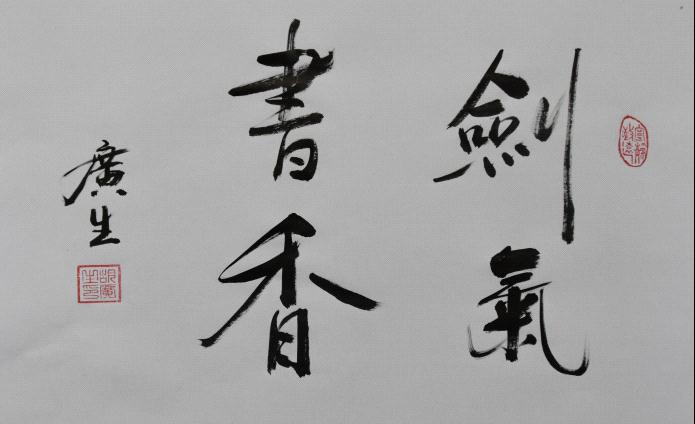 劍氣
書香
廣生